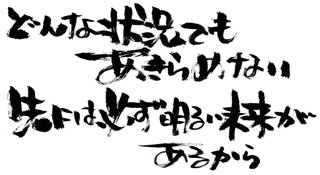 どんな状況でも
あきらめない
先には必ず明るい未来が
あるから